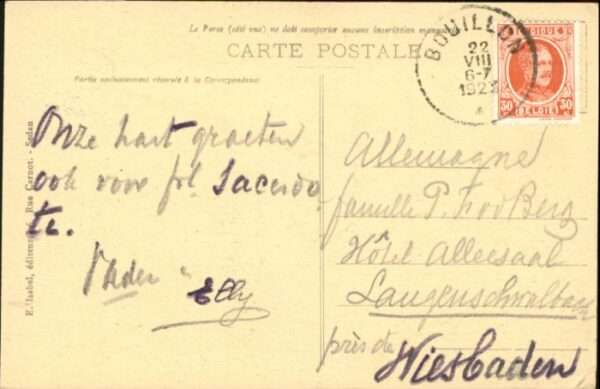 Le Recto (côté vue) ne doit comporter aucune inscription manuscrite
CARTE POSTALE
Partie exclusivement réservée à la Correspondance
BOUILLON
22
VIII
6-7
1922
BELGIQUE
30 30
BELGIË
E. Isabel, éditeur, Rue Carnot. - Sedan
Onze hart groeten
ook voor frl. Sacerdo
te.
Vader Elly
Allemagne
famille P. Berg
Hôtel Alleesaal
Langenschwalbach
près de Wiesbaden